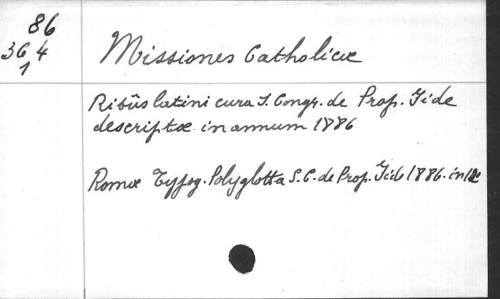 86
364
1
Missiones Catholicae
Ritûs latini cura S. Congr. de Prop. Fide
descriptae in annum 1886
Romae Typog. Polyglotta S. C. de Prop. Fide 1886. in 12e